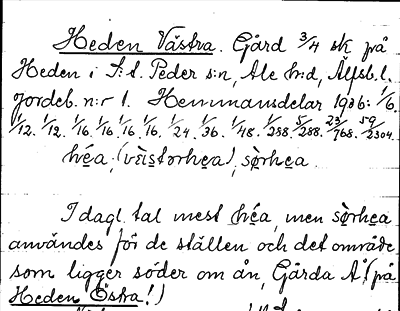 Heden Västra. Gård 3/4 sk på
Heden i S:t Peder s:n, Ale h:d, Älfsb. l.
Jordeb. n:r 1. Hemmansdelar 1906: 1/6.
1/12. 1/12. 1/16. 1/16. 1/16. 1/16. 1/24. 1/36. 1/48. 1/288. 5/288. 23/768. 59/2304.
héa, (vèistorhea), sòrhea.
I dagl. tal mest héa, men sòrhea
användes för de ställen och det område,
som ligger söder om ån, Gårda Å! (på
Heden Östra!)